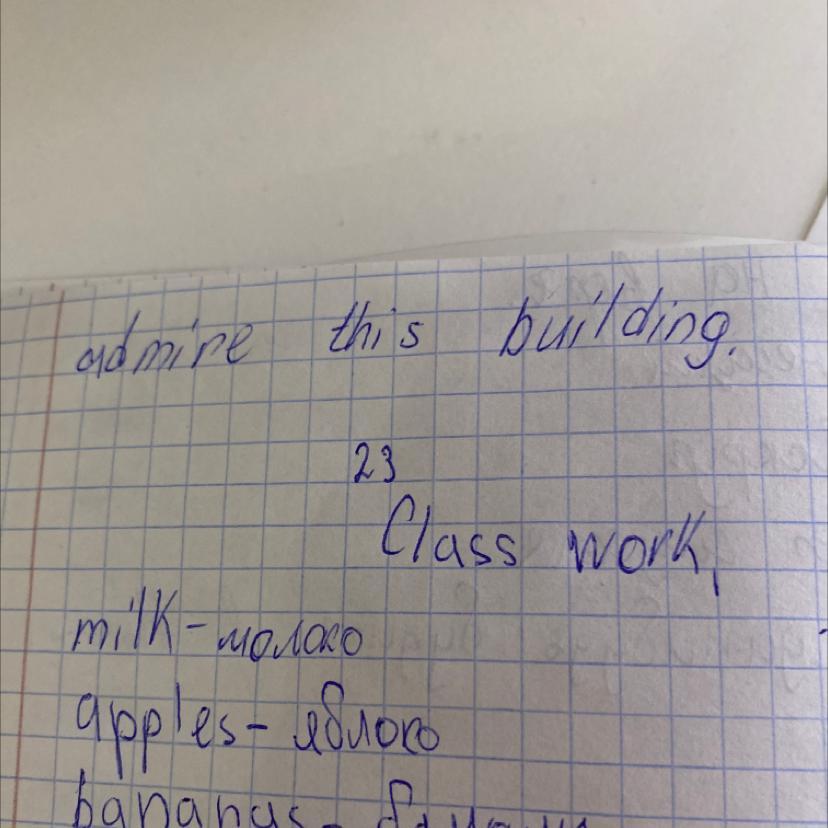 admire this building.
23
Class work,
milk - молоко
apples - яблоко
bananas -